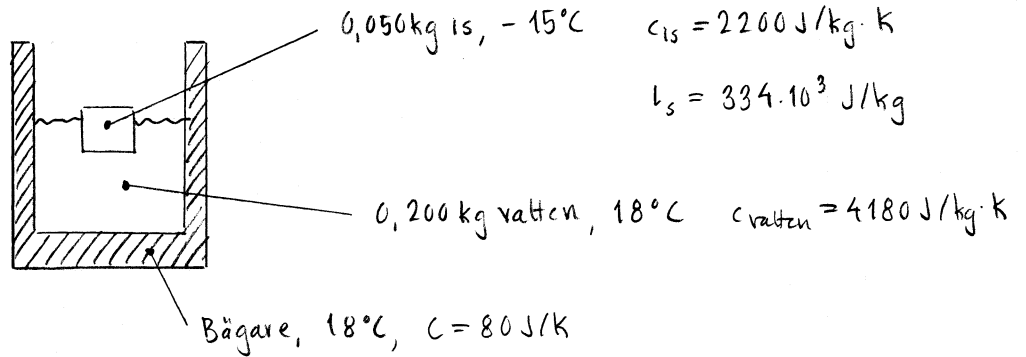 0,050kg is, - 15°C c_is = 2200 J/kg·K
l_s = 334·10³ J/kg
0,200 kg vatten, 18°C c_vatten = 4180 J/kg·K
Bägare, 18°C, C = 80 J/K